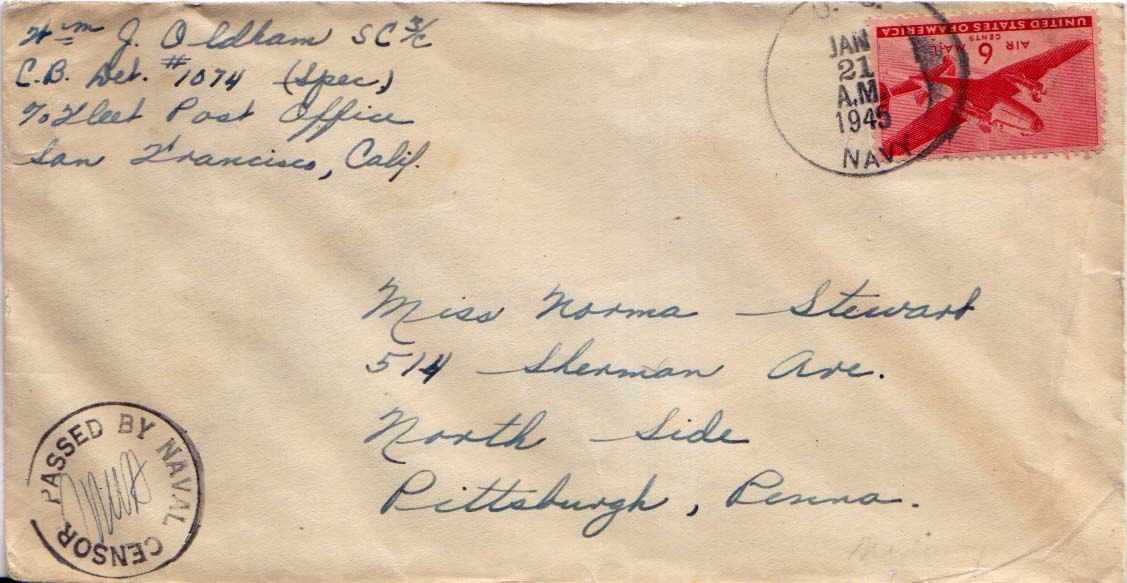 Wm J. Oldham SC 3/C
C.B. Det. #1074 (Spec.)
℅ Fleet Post Office
San Francisco, Calif.
U. S.
JAN
21
A.M
1945
NAVY
UNITED STATES OF AMERICA
6 CENTS AIR MAIL
Miss Norma Stewart
514 Sherman Ave.
North Side
Pittsburgh, Penna.
PASSED BY NAVAL CENSOR